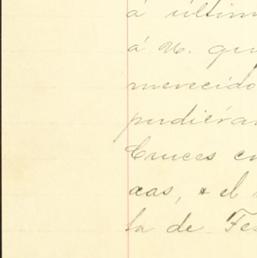 á últim
á U. qu
merecido
pudiéra
Cruces c
cas, & el
la de Fe